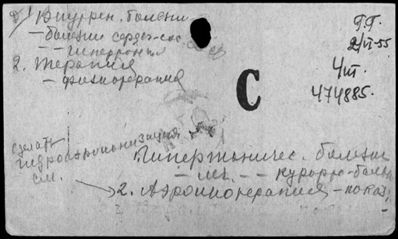 Внутрен. болезни
– болезни сердеч-сос.
– – гипертония
2. Терапия
– физиотерапия
Г.Г.
2/VI-55
4м.
474885.
С
сделать
гидроаэроионизация
см.
Гипертоничес. болезнь
– леч. – – курорт-больн
→ 2. Аэроионотерапия – показ.